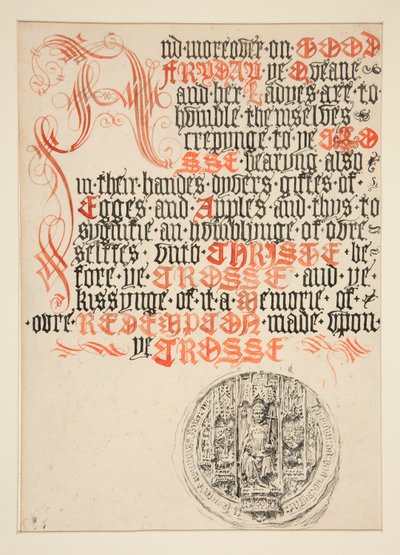 And·moreover·on·GOOD
FRYDAY·ye·Qveane·
and·her·Ladyes·are·to·
homble·themselves
crepynge·to·ye·CRO
SSE·bearyng·also
in·their·handes·dyvers·giftes·of·
Egges·and·Apples·and·thus·to
signifie·an·homblynge·of·ovre
selffes·vnto·CHRISTE·be
fore·ye·CROSSE·and·ye
kissynge·of·it·a·Memorie·of·
·ovre·REDEMPTON·made·vpon·
ye CROSSE